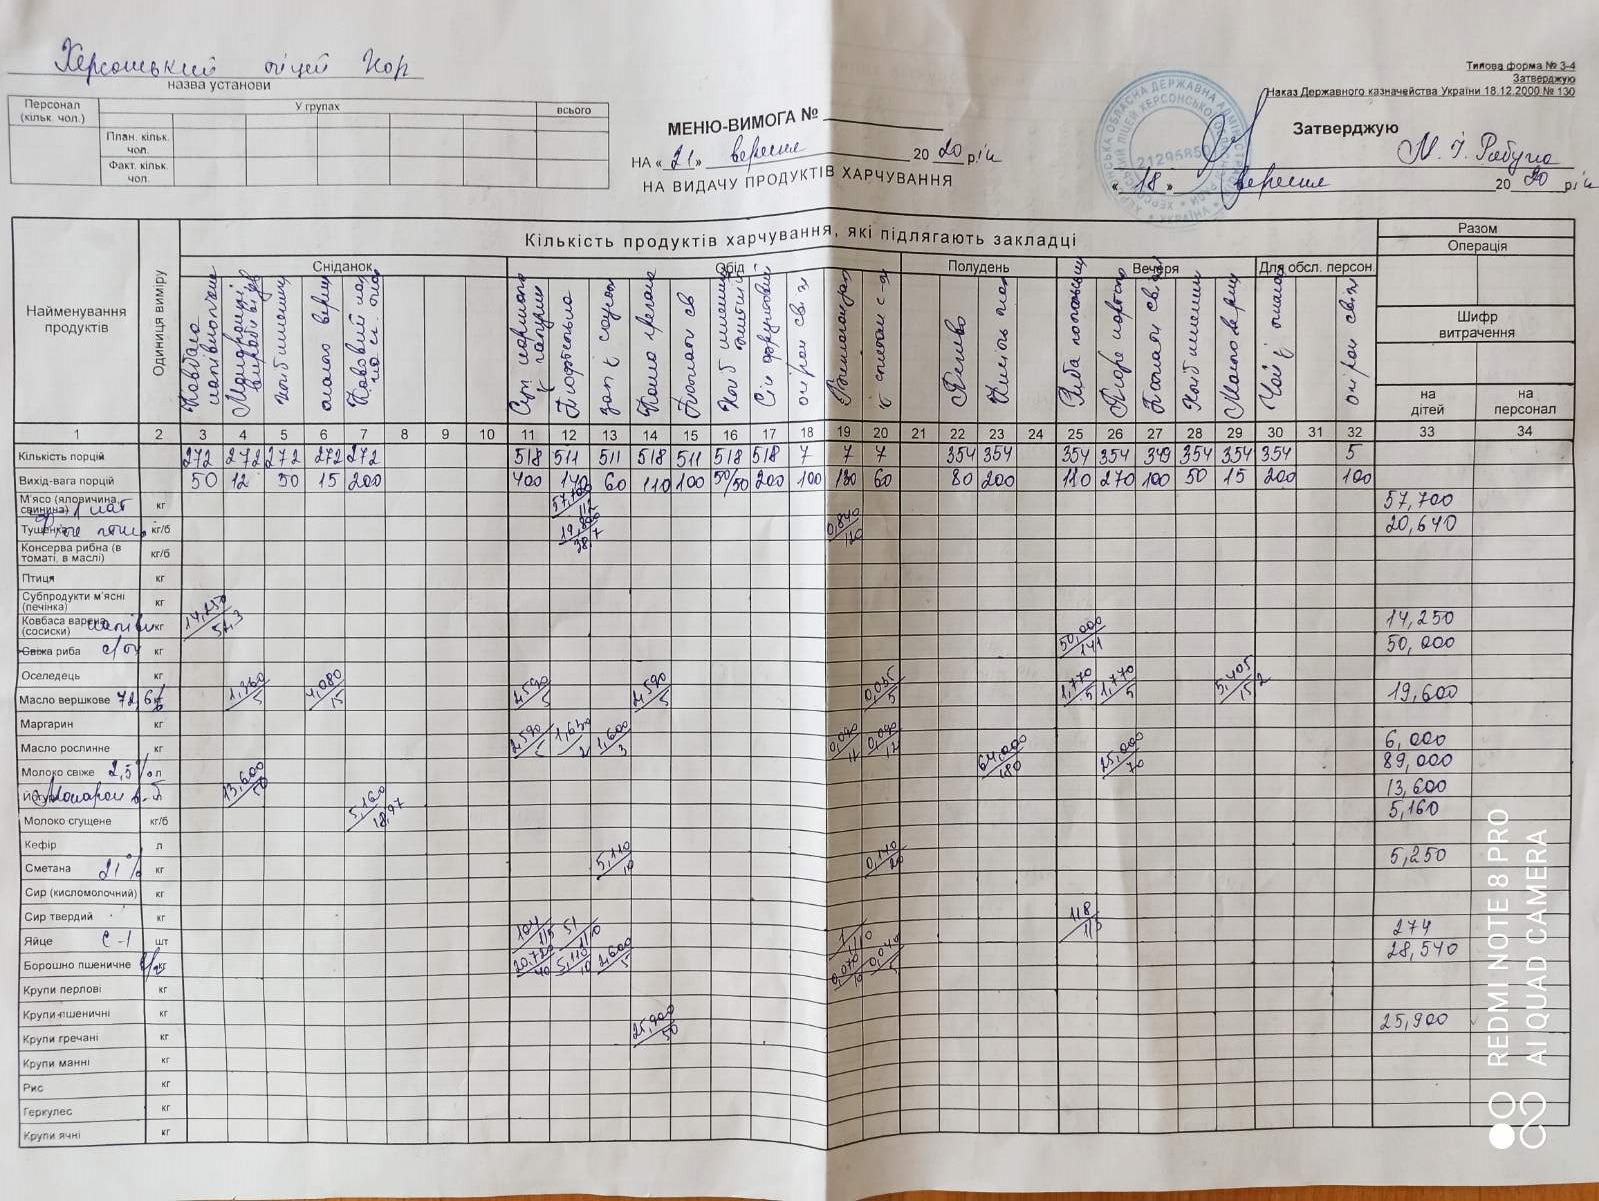 Херсонський ліцей ХОР
назва установи
Типова форма № З-4
Затверджую
Наказ Державного казначейства України 18.12.2000 № 130
Персонал (кільк. чол.)
У групах
всього
План. кільк. чол.
Факт. кільк. чол.
МЕНЮ-ВИМОГА №
НА « 21 » вересня 20 20 рік
НА ВИДАЧУ ПРОДУКТІВ ХАРЧУВАННЯ
21295850
Затверджую
« 18 » вересня 20 20 рік
Найменування продуктів
Одиниця виміру
Кількість продуктів харчування, які підлягають закладці
Разом
Операція
Сніданок Обід Полудень Вечеря Для обсл. персон.
Шифр витрачення
на дітей
на персонал
Ковбаса напівкопчена
хліб пшеничний
масло верш
Суп
зап с соусом
Каша гречана
Сік фруктовий
огірок св.
Печиво
Кисіль мол
Риба по польськи
Пюре картоп
Хліб пшеничний
Масло верш
огірок св.
1 2 3 4 5 6 7 8 9 10 11 12 13 14 15 16 17 18 19 20 21 22 23 24 25 26 27 28 29 30 31 32 33 34
Кількість порцій 272 272 272 272 272 518 511 511 518 511 518 518 7 7 7 354 354 354 354 349 354 354 354 5
Вихід-вага порцій 50 12 50 15 200 400 140 60 110 100 50/50 200 100 130 60 80 200 110 270 100 50 15 200 100
М'ясо (яловичина, свинина) кг 57,700/112 57,700
Тушенка кг/б 19,800/38,7 0,840/120 20,640
Консерва рибна (в томаті, в маслі) кг/б
Птиця кг
Субпродукти м'ясні (печінка) кг
Ковбаса варена (сосиски) кг 14,250/52,3 14,250
Свіжа риба с/м кг 50,000/141 50,000
Оселедець кг
Масло вершкове 72,6% кг 1,360/5 4,080/15 2,590/5 2,590/5 0,035/5 1,770/5 1,770/5 5,405/15,2 19,600
Маргарин кг
Масло рослинне кг 2,590/5 1,630/2 1,600/3 0,090/12 0,090/12 6,000
Молоко свіже 2,5% л 64,000/180 25,000/70 89,000
Макарон в. 13,600/50 13,600
Молоко сгущене кг/б 5,160/18,97 5,160
Кефір л
Сметана 21% кг 5,110/10 0,140/20 5,250
Сир (кисломолочний) кг
Сир твердий кг
Яйце С-1 шт 104/1/5 51/1/10 1/1/10 118/1/3 274
Борошно пшеничне кг 20,720/40 5,110/10 2,600/5 0,070/10 0,040/5 28,540
Крупи перлові кг
Крупи пшеничні кг
Крупи гречані кг 25,900/50 25,900
Крупи манні кг
Рис кг
Геркулес кг
Крупи ячні кг
REDMI NOTE 8 PRO
AI QUAD CAMERA